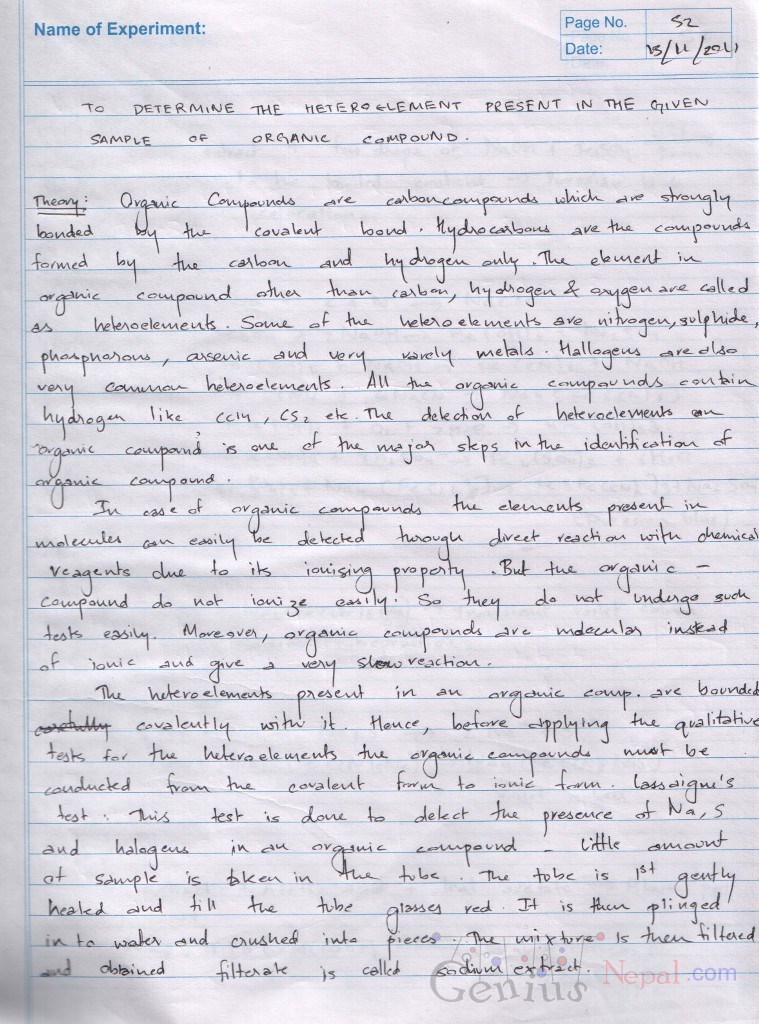 Name of Experiment:
Page No. 52
Date: 15/11/2011
TO DETERMINE THE HETEROELEMENT PRESENT IN THE GIVEN
SAMPLE OF ORGANIC COMPOUND.
Theory: Organic Compounds are carboncompounds which are strongly
bonded by the covalent bond. Hydrocarbons are the compounds
formed by the carbon and hydrogen only. The element in
organic compound other than carbon, hydrogen & oxygen are called
as heteroelements. Some of the heteroelements are nitrogen, sulphide,
phosphorous, arsenic and very rarely metals. Hallogens are also
very common heteroelements. All the organic compounds contain
hydrogen like CCl4, CS2 etc. The detection of heteroelements on
organic compound is one of the major steps in the identification of
organic compound.
In case of organic compounds the elements present in
molecules can easily be detected through direct reaction with chemical
reagents due to its ionising property. But the organic -
compound do not ionize easily. So they do not undergo such
tests easily. Moreover, organic compounds are molecular instead
of ionic and give a very slow reaction.
The heteroelements present in an organic comp. are bounded
carefully covalently with it. Hence, before applying the qualitative
tests for the heteroelements the organic compounds must be
conducted from the covalent form to ionic form. Lassaigne's
test: This test is done to detect the presence of Na, S
and halogens in an organic compound - little amount
of sample is taken in the tube. The tube is 1st gently
heated and till the tube glasses red. It is then plinged
in to water and crushed into pieces. The mixture is then filtered
and obtained filterate is called sodium extract.
Genius Nepal.com